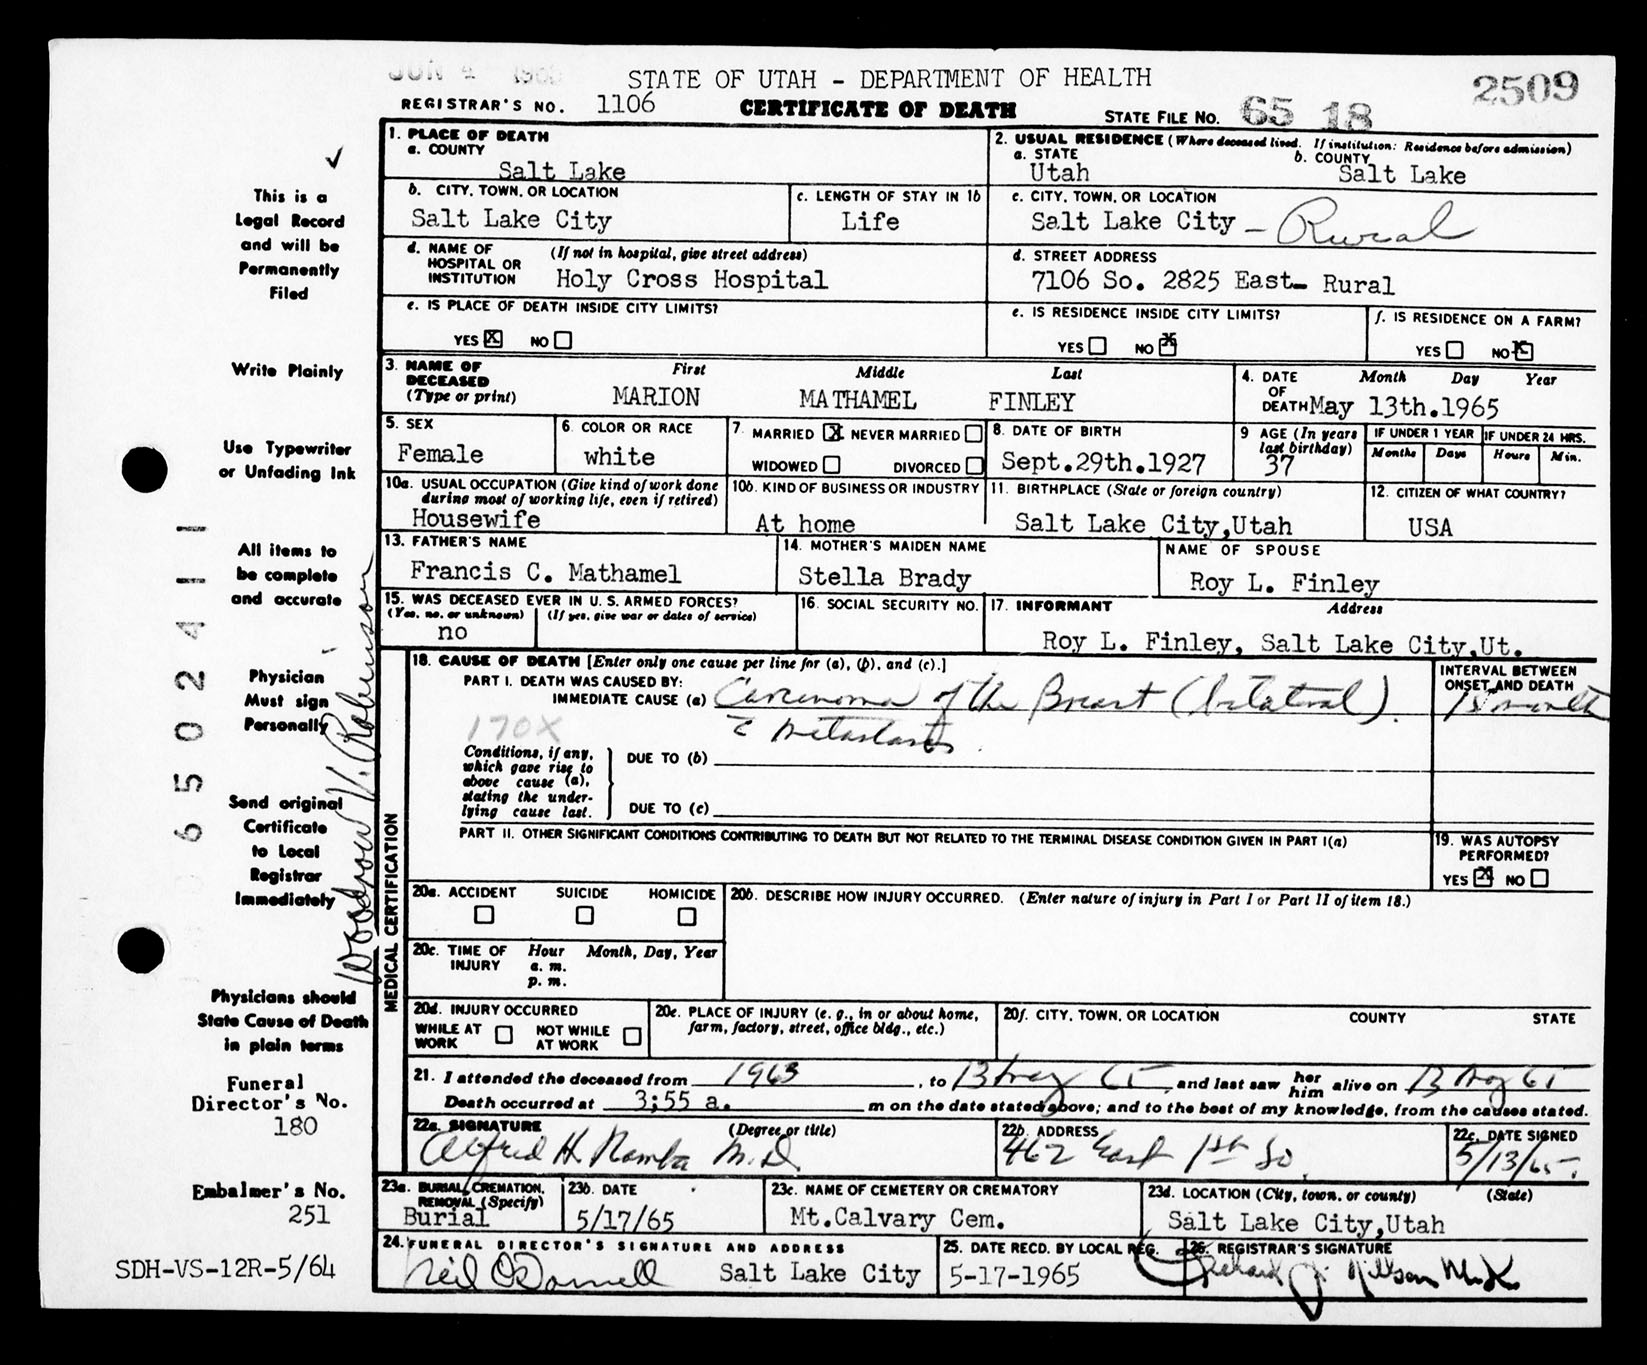 JUN 4 196
STATE OF UTAH - DEPARTMENT OF HEALTH
2509
REGISTRAR'S NO. 1106
CERTIFICATE OF DEATH
STATE FILE NO. 65 18
This is a
Legal Record
and will be
Permanently
Filed
Write Plainly
Use Typewriter
or Unfading Ink
All items to
be complete
and accurate
Physician
Must sign
Personally
Send original
Certificate
to Local
Registrar
Immediately
Physicians should
State Cause of Death
in plain terms
Funeral
Director's No.
180
Embalmer's No.
251
SDH-VS-12R-5/64
65 02411
Woodrow V. Robinson
MEDICAL CERTIFICATION
1. PLACE OF DEATH
a. COUNTY
Salt Lake
2. USUAL RESIDENCE (Where deceased lived. If institution: Residence before admission)
a. STATE
Utah
b. COUNTY
Salt Lake
b. CITY, TOWN, OR LOCATION
Salt Lake City
c. LENGTH OF STAY IN 1b
Life
c. CITY, TOWN, OR LOCATION
Salt Lake City - Rural
d. NAME OF HOSPITAL OR INSTITUTION
(If not in hospital, give street address)
Holy Cross Hospital
d. STREET ADDRESS
7106 So. 2825 East- Rural
e. IS PLACE OF DEATH INSIDE CITY LIMITS?
YES X NO
e. IS RESIDENCE INSIDE CITY LIMITS?
YES NO X
f. IS RESIDENCE ON A FARM?
YES NO X
3. NAME OF DECEASED
(Type or print)
First Middle Last
MARION MATHAMEL FINLEY
4. DATE OF DEATH
Month Day Year
May 13th.1965
5. SEX
Female
6. COLOR OR RACE
white
7. MARRIED X NEVER MARRIED
WIDOWED DIVORCED
8. DATE OF BIRTH
Sept.29th.1927
9 AGE (In years last birthday)
37
IF UNDER 1 YEAR
Months Days
IF UNDER 24 HRS.
Hours Min.
10a. USUAL OCCUPATION (Give kind of work done
during most of working life, even if retired)
Housewife
10b. KIND OF BUSINESS OR INDUSTRY
At home
11. BIRTHPLACE (State or foreign country)
Salt Lake City,Utah
12. CITIZEN OF WHAT COUNTRY?
USA
13. FATHER'S NAME
Francis C. Mathamel
14. MOTHER'S MAIDEN NAME
Stella Brady
NAME OF SPOUSE
Roy L. Finley
15. WAS DECEASED EVER IN U. S. ARMED FORCES?
(Yes, no, or unknown) (If yes, give war or dates of service)
no
16. SOCIAL SECURITY NO.
17. INFORMANT Address
Roy L. Finley, Salt Lake City,Ut.
18. CAUSE OF DEATH [Enter only one cause per line for (a), (b), and (c).]
PART I. DEATH WAS CAUSED BY:
IMMEDIATE CAUSE (a) Carcinoma of the Breast (bilateral).
170X
c metastasis.
INTERVAL BETWEEN
ONSET AND DEATH
Conditions, if any,
which gave rise to
above cause (a),
stating the under-
lying cause last.
DUE TO (b)
DUE TO (c)
PART II. OTHER SIGNIFICANT CONDITIONS CONTRIBUTING TO DEATH BUT NOT RELATED TO THE TERMINAL DISEASE CONDITION GIVEN IN PART I(a)
19. WAS AUTOPSY
PERFORMED?
YES X NO
20a. ACCIDENT SUICIDE HOMICIDE
20b. DESCRIBE HOW INJURY OCCURRED. (Enter nature of injury in Part I or Part II of item 18.)
20c. TIME OF INJURY
Hour Month, Day, Year
a. m.
p. m.
20d. INJURY OCCURRED
WHILE AT WORK NOT WHILE AT WORK
20e. PLACE OF INJURY (e. g., in or about home,
farm, factory, street, office bldg., etc.)
20f. CITY, TOWN, OR LOCATION COUNTY STATE
21. I attended the deceased from 1963, to 13 May 65, and last saw her him alive on 13 May 65
Death occurred at 3;55 a. m on the date stated above; and to the best of my knowledge, from the causes stated.
22a. SIGNATURE (Degree or title)
Alfred H. Namba M.D.
22b. ADDRESS
462 East 1st So.
22c. DATE SIGNED
5/13/65.
23a. BURIAL, CREMATION,
REMOVAL (Specify)
Burial
23b. DATE
5/17/65
23c. NAME OF CEMETERY OR CREMATORY
Mt.Calvary Cem.
23d. LOCATION (City, town, or county) (State)
Salt Lake City,Utah
24. FUNERAL DIRECTOR'S SIGNATURE AND ADDRESS
Neil O'Donnell Salt Lake City
25. DATE RECD. BY LOCAL REG.
5-17-1965
26. REGISTRAR'S SIGNATURE